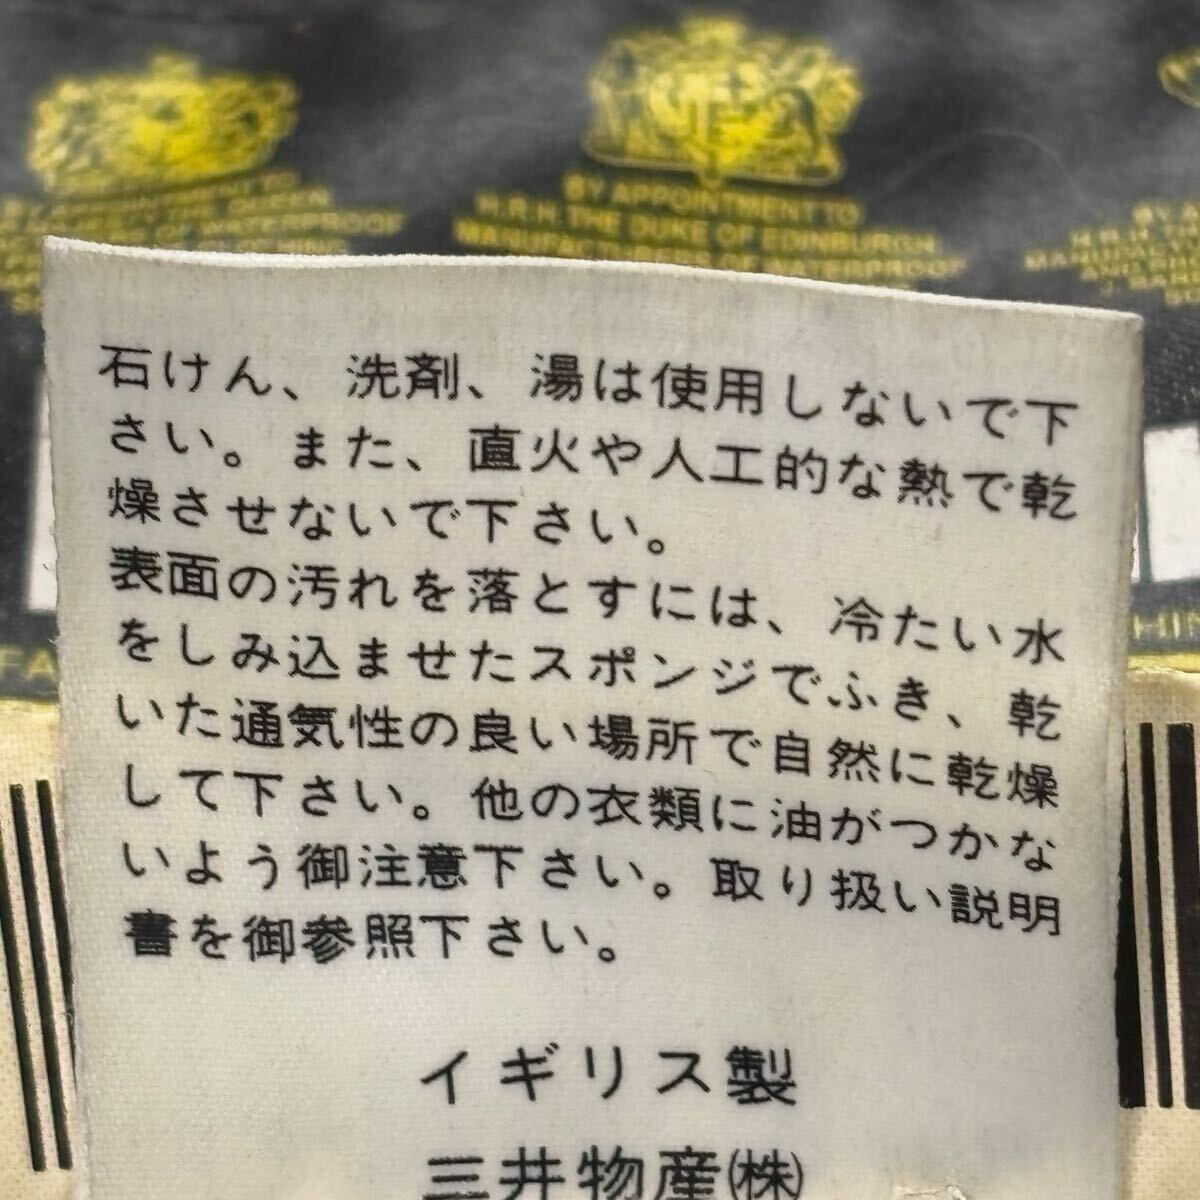 BY APPOINTMENT TO
H.R.H. THE DUKE OF EDINBURGH
MANUFACTURERS OF WATERPROOF
石けん、洗剤、湯は使用しないで下
さい。また、直火や人工的な熱で乾
燥させないで下さい。
表面の汚れを落とすには、冷たい水
をしみ込ませたスポンジでふき、乾
いた通気性の良い場所で自然に乾燥
して下さい。他の衣類に油がつかな
いよう御注意下さい。取り扱い説明
書を御参照下さい。
イギリス製
三井物産㈱